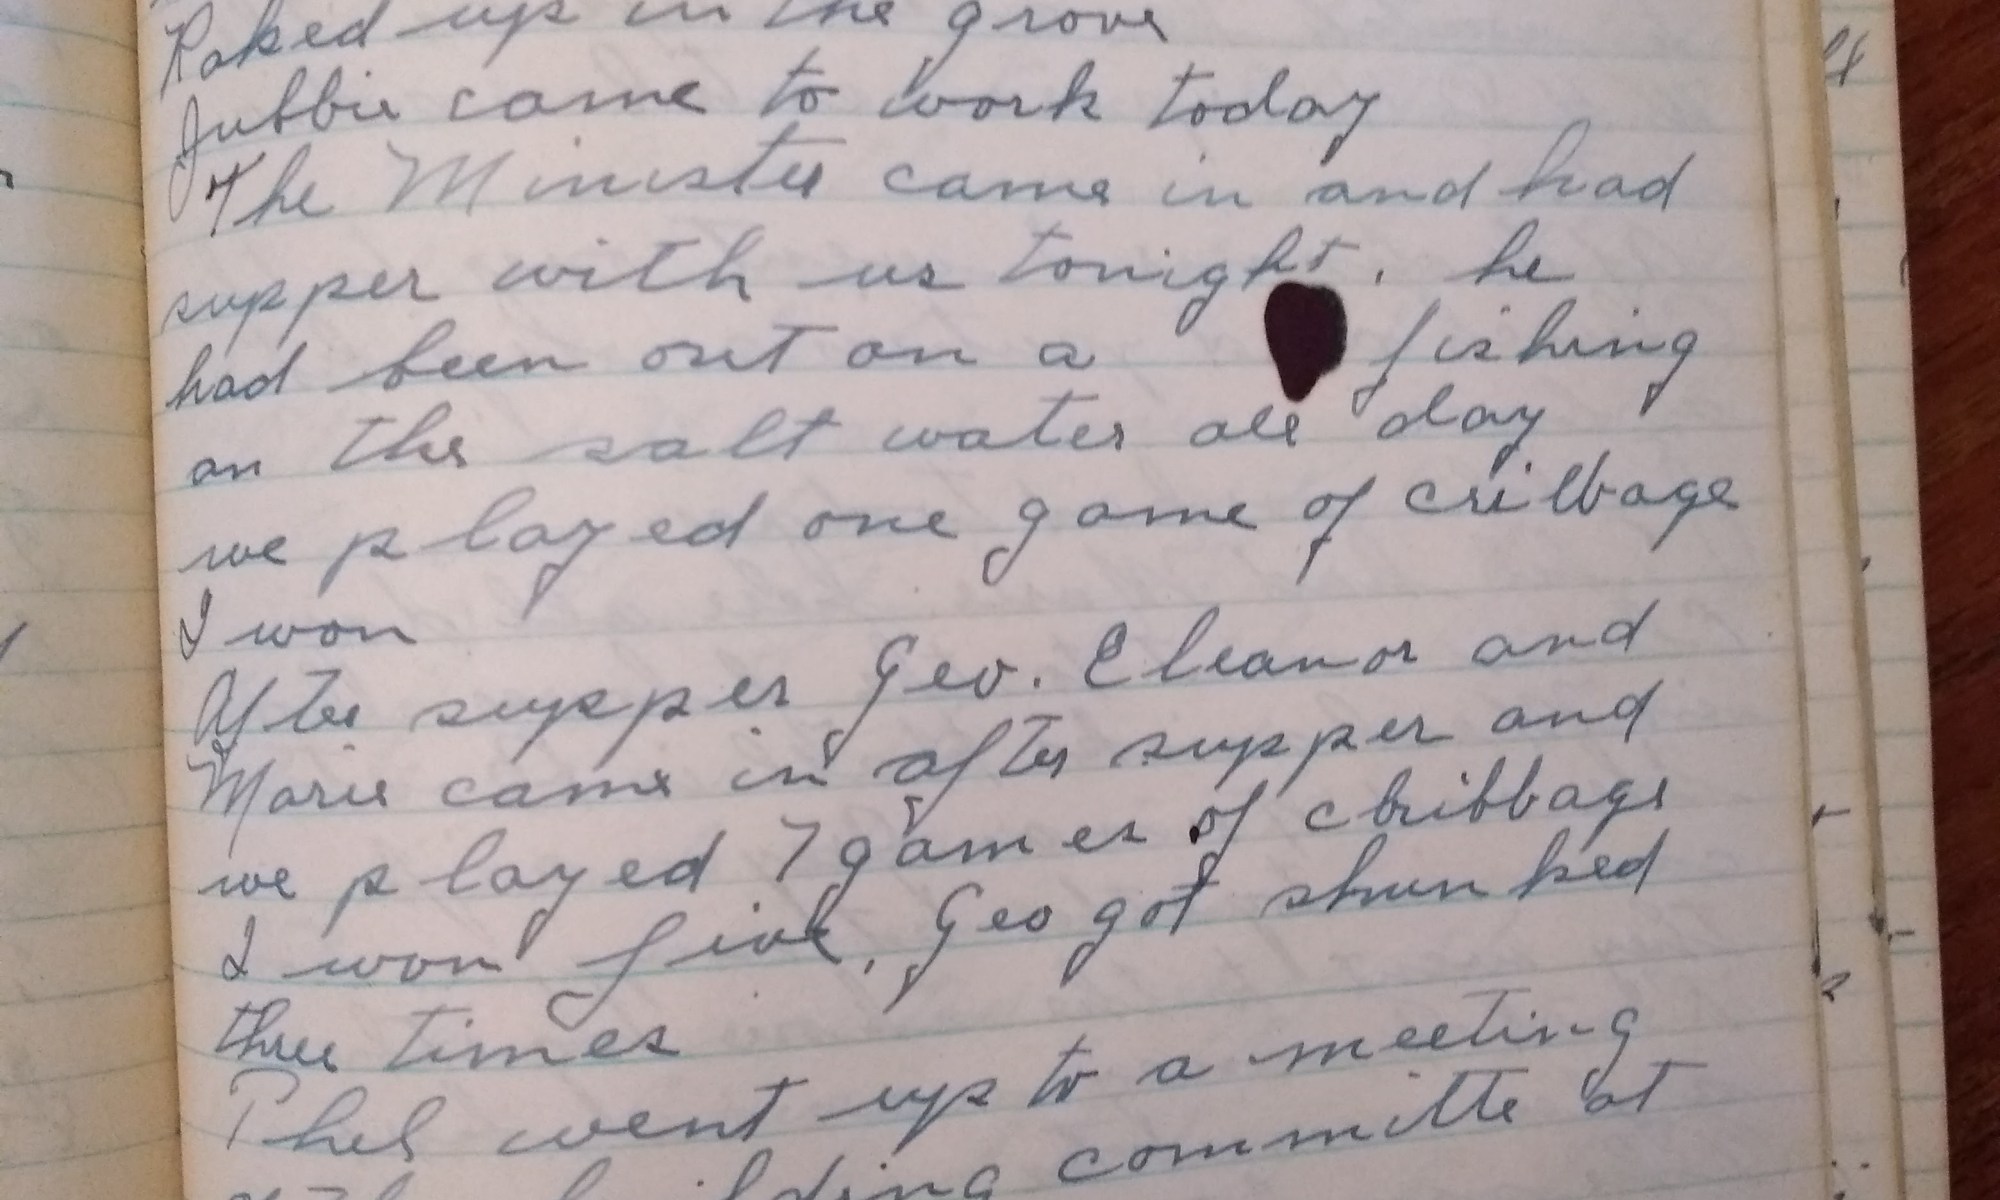 Raked up in the grove
Jubbie came to work today
The Minister came in and had
supper with us tonight. he
had been out on a fishing
on the salt water all day
we played one game of cribbage
I won
After supper Geo. Eleanor and
Marie came in after supper and
we played 7 games of cbribbage
I won five, Geo got skunked
three times
Phel went up to a meeting
building committe at